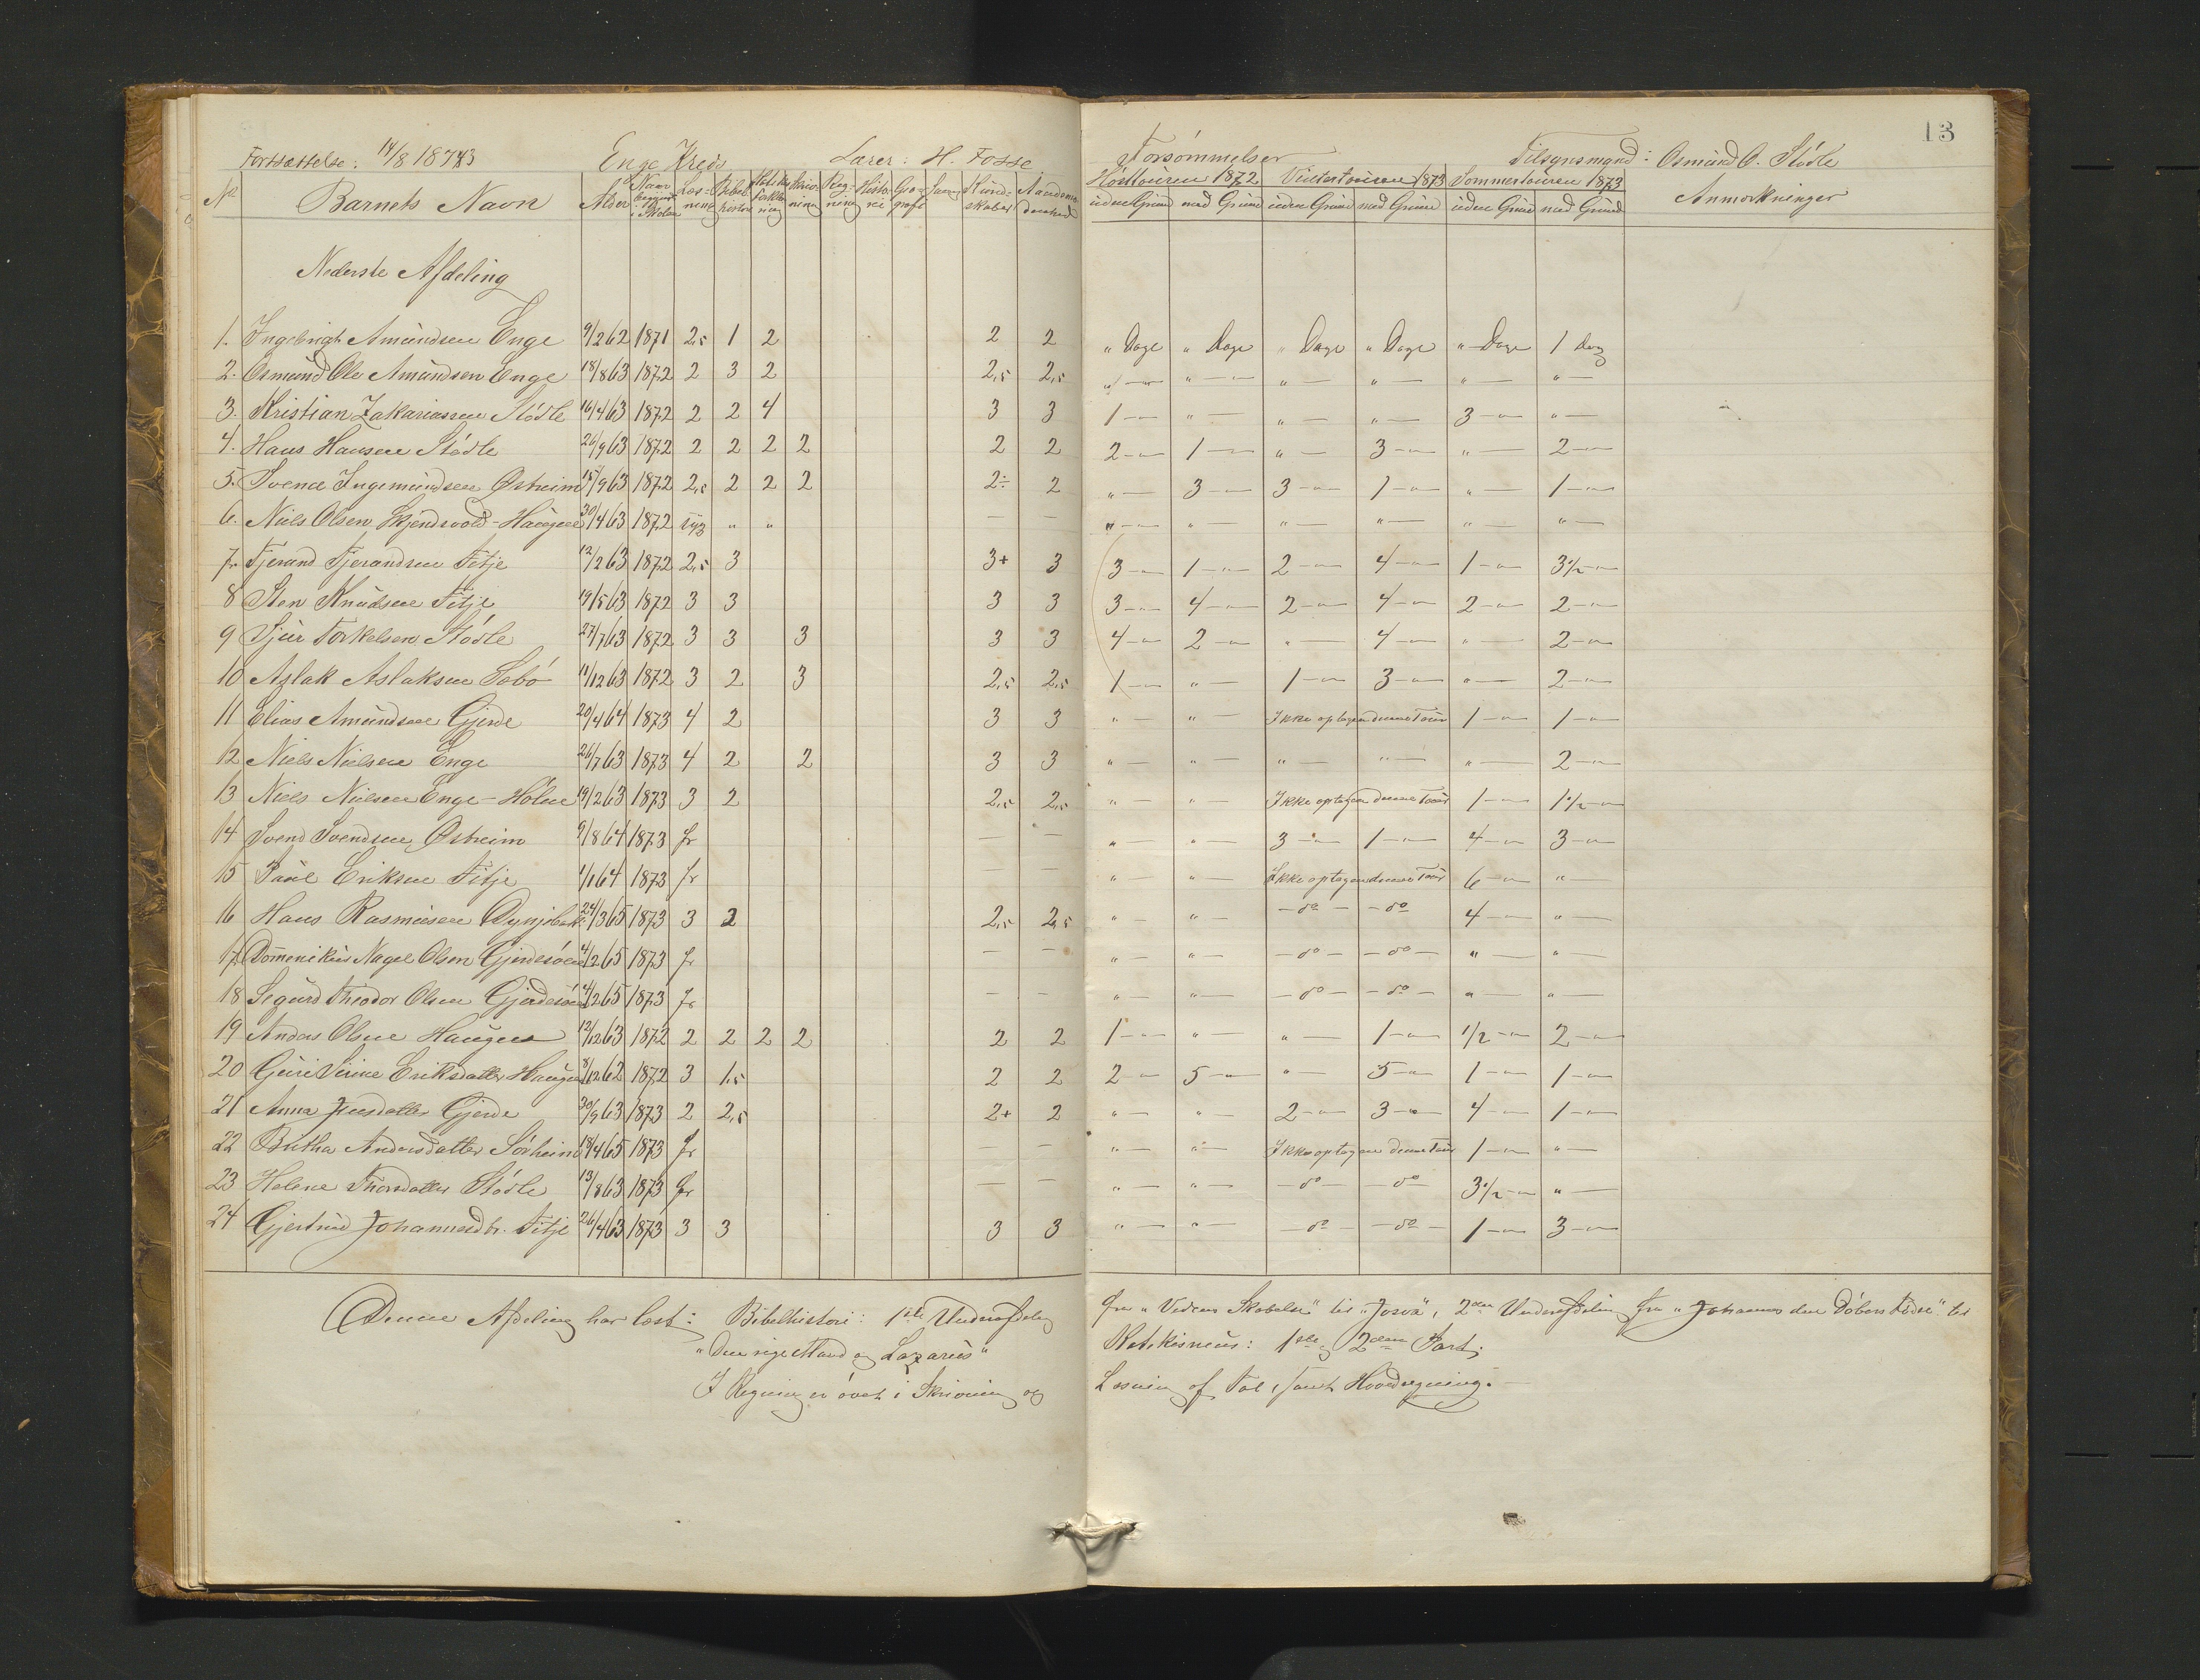 Fortsættelse: 14/8 1873 Enge Kreds Lærer: H. Fosse
No. Barnets Navn Alder Naar begyndt i Skolen Læs-ning Bibel-historie Skriv-ning Reg-ning Histo-rie Geo-grafi Sang Kund-skaber
Nederste Afdeling
1. Ingebrigt Amundsen Enge 9/2 62 1871 2,5 1 2 2 2
2. Osmund Ole Amundsen Enge 18/8 63 1872 2 3 2 2,5 2,5
3. Kristian Zakariassen Stødle 16/4 63 1872 2 2 4 3 3
4. Hans Hansen Stødle 26/9 63 1872 2 2 2 2 2 2
5. Svend Ingemundsen Østreim 15/9 63 1872 2,5 2 2 2 2÷ 2
6. Niels Olsen Skjendsvold-Haugen 30/4 63 1872 syg " " — —
7. Tjerand Tjerandsen Fitje 12/2 63 1872 2,5 3 3+ 3
8 Sten Knudsen Fitje 19/5 63 1872 3 3 3 3
9 Sjur Torkelsen Stødle 27/7 63 1872 3 3 3 3 3
10 Aslak Aslaksen Sæbø 11/12 63 1872 3 2 3 2,5 2,5
11 Elias Amundsen Gjerde 20/4 64 1873 4 2 3 3
12 Niels Nielsen Enge 26/7 63 1873 4 2 2 3 3
13 Niels Nielsen Enge-Holme 19/2 63 1873 3 2 2,5 2,5
14 Svend Svendsen Østreim 9/8 64 1873 fr — —
15 Paul Eriksen Fitje 1/1 64 1873 fr — —
16 Hans Rasmusen 24/3 65 1873 3 2 2,5 2,5
17. Domenikus Nagel Olsen Gjerdesøen 4/2 65 1873 fr — —
18 Sigurd Theodor Olsen Gjerdesøen 4/2 65 1873 fr — —
19 Anders Olsen Haugen 12/12 63 1872 2 2 2 2 2 2
20 Guri Sirine Eriksdatter Haugen 8/12 62 1872 3 1,5 2 2
21 Anna Jensdatter Gjerde 30/9 63 1873 2 2,5 2+ 2
22 Britha Andersdatter Sørheim 18/4 65 1873 fr — —
23 Helene Thorsdatter Stødle 13/8 63 1873 fr — —
24 Gjertrud Johannesdtr. Fitje 26/4 63 1873 3 3 3 3
Denne Afdeling har læst: Bibelhistorie: 1ste Underafdeling
"Den rige Mand og Lazarus"
I Regning er øvet i Skrivning og
13
Forsømmelser Tilsynsmand: Osmund O. Stødle
Høsttouren 1872 Vintertouren 1873 Sommertouren 1873 Anmærkninger
uden Grund med Grund uden Grund med Grund uden Grund med Grund
" Dage " Dage " Dage " Dage " Dage 1 dag
" — " — " — " — " — " —
1 — " — " — " — 3 — " —
2 — 1 — " — 3 — " — 2 —
" — 3 — 3 — 1 — " — 1 —
" — " — " — " — " — " —
3 — 1 — 2 — 4 — 1 — 3 1/2 —
3 — 4 — 2 — 4 — 2 — 2 —
4 — 2 — " — 4 — " — 2 —
1 — " — 1 — 3 — " — 2 —
" — " — Ikke optagen denne Tour 1 — 1 —
" — " — " — " — " — 2 —
" — " — Ikke optagen denne Tour 1 — 1 1/2 —
" — " — 3 — 1 — 4 — 3 —
" — " — Ikke optagen denne Tour 6 — " —
" — " — — do — — do 4 — " —
" — " — — do — — do — " — " —
" — " — — do — — do — " — " —
1 — " — " — 1 — 1/2 — 2 —
2 — 5 — " — 5 — 1 — 1 —
" — " — 2 — 3 — 4 — 1 —
" — " — Ikke optagen denne Tour 1 — " —
" — " — — do — — do 3 1/2 — " —
" — " — — do — — do — 1 — 3 —
fra "Verdens Skabelse" til "Josva", 2den Underafdeling fra "Johannes den Døbers Fødsel" til
Katekismus: 1ste og 2den Part.
Læsning af Tal, samt Hovedregning.